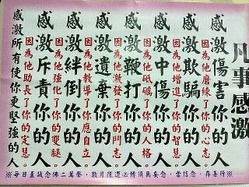 凡事感激
感激傷害你的人
因為他磨練了你的心志
感激欺騙你的人
因為他增進了你的智慧
感激中傷你的人
因為他砥礪了你的人格
感激鞭打你的人
因為他激發了你的鬥志
感激遺棄你的人
因為他教導了你該自立
感激絆倒你的人
因為他強化了你的雙腿
感激斥責你的人
因為他助長了你的定慧
感激所有使你更堅強的人